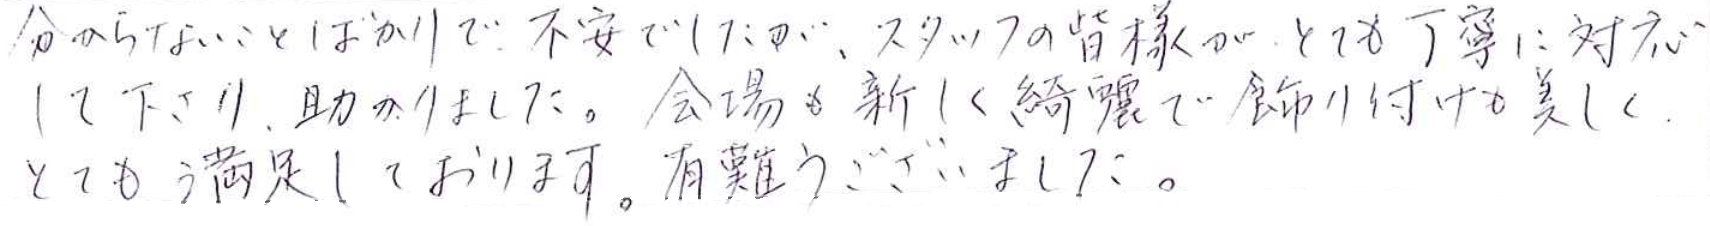 分からないことばかりで不安でしたが、スタッフの皆様がとても丁寧に対応
して下さり、助かりました。会場も新しく綺麗で飾り付けも美しく、
とても満足しております。有難うございました。